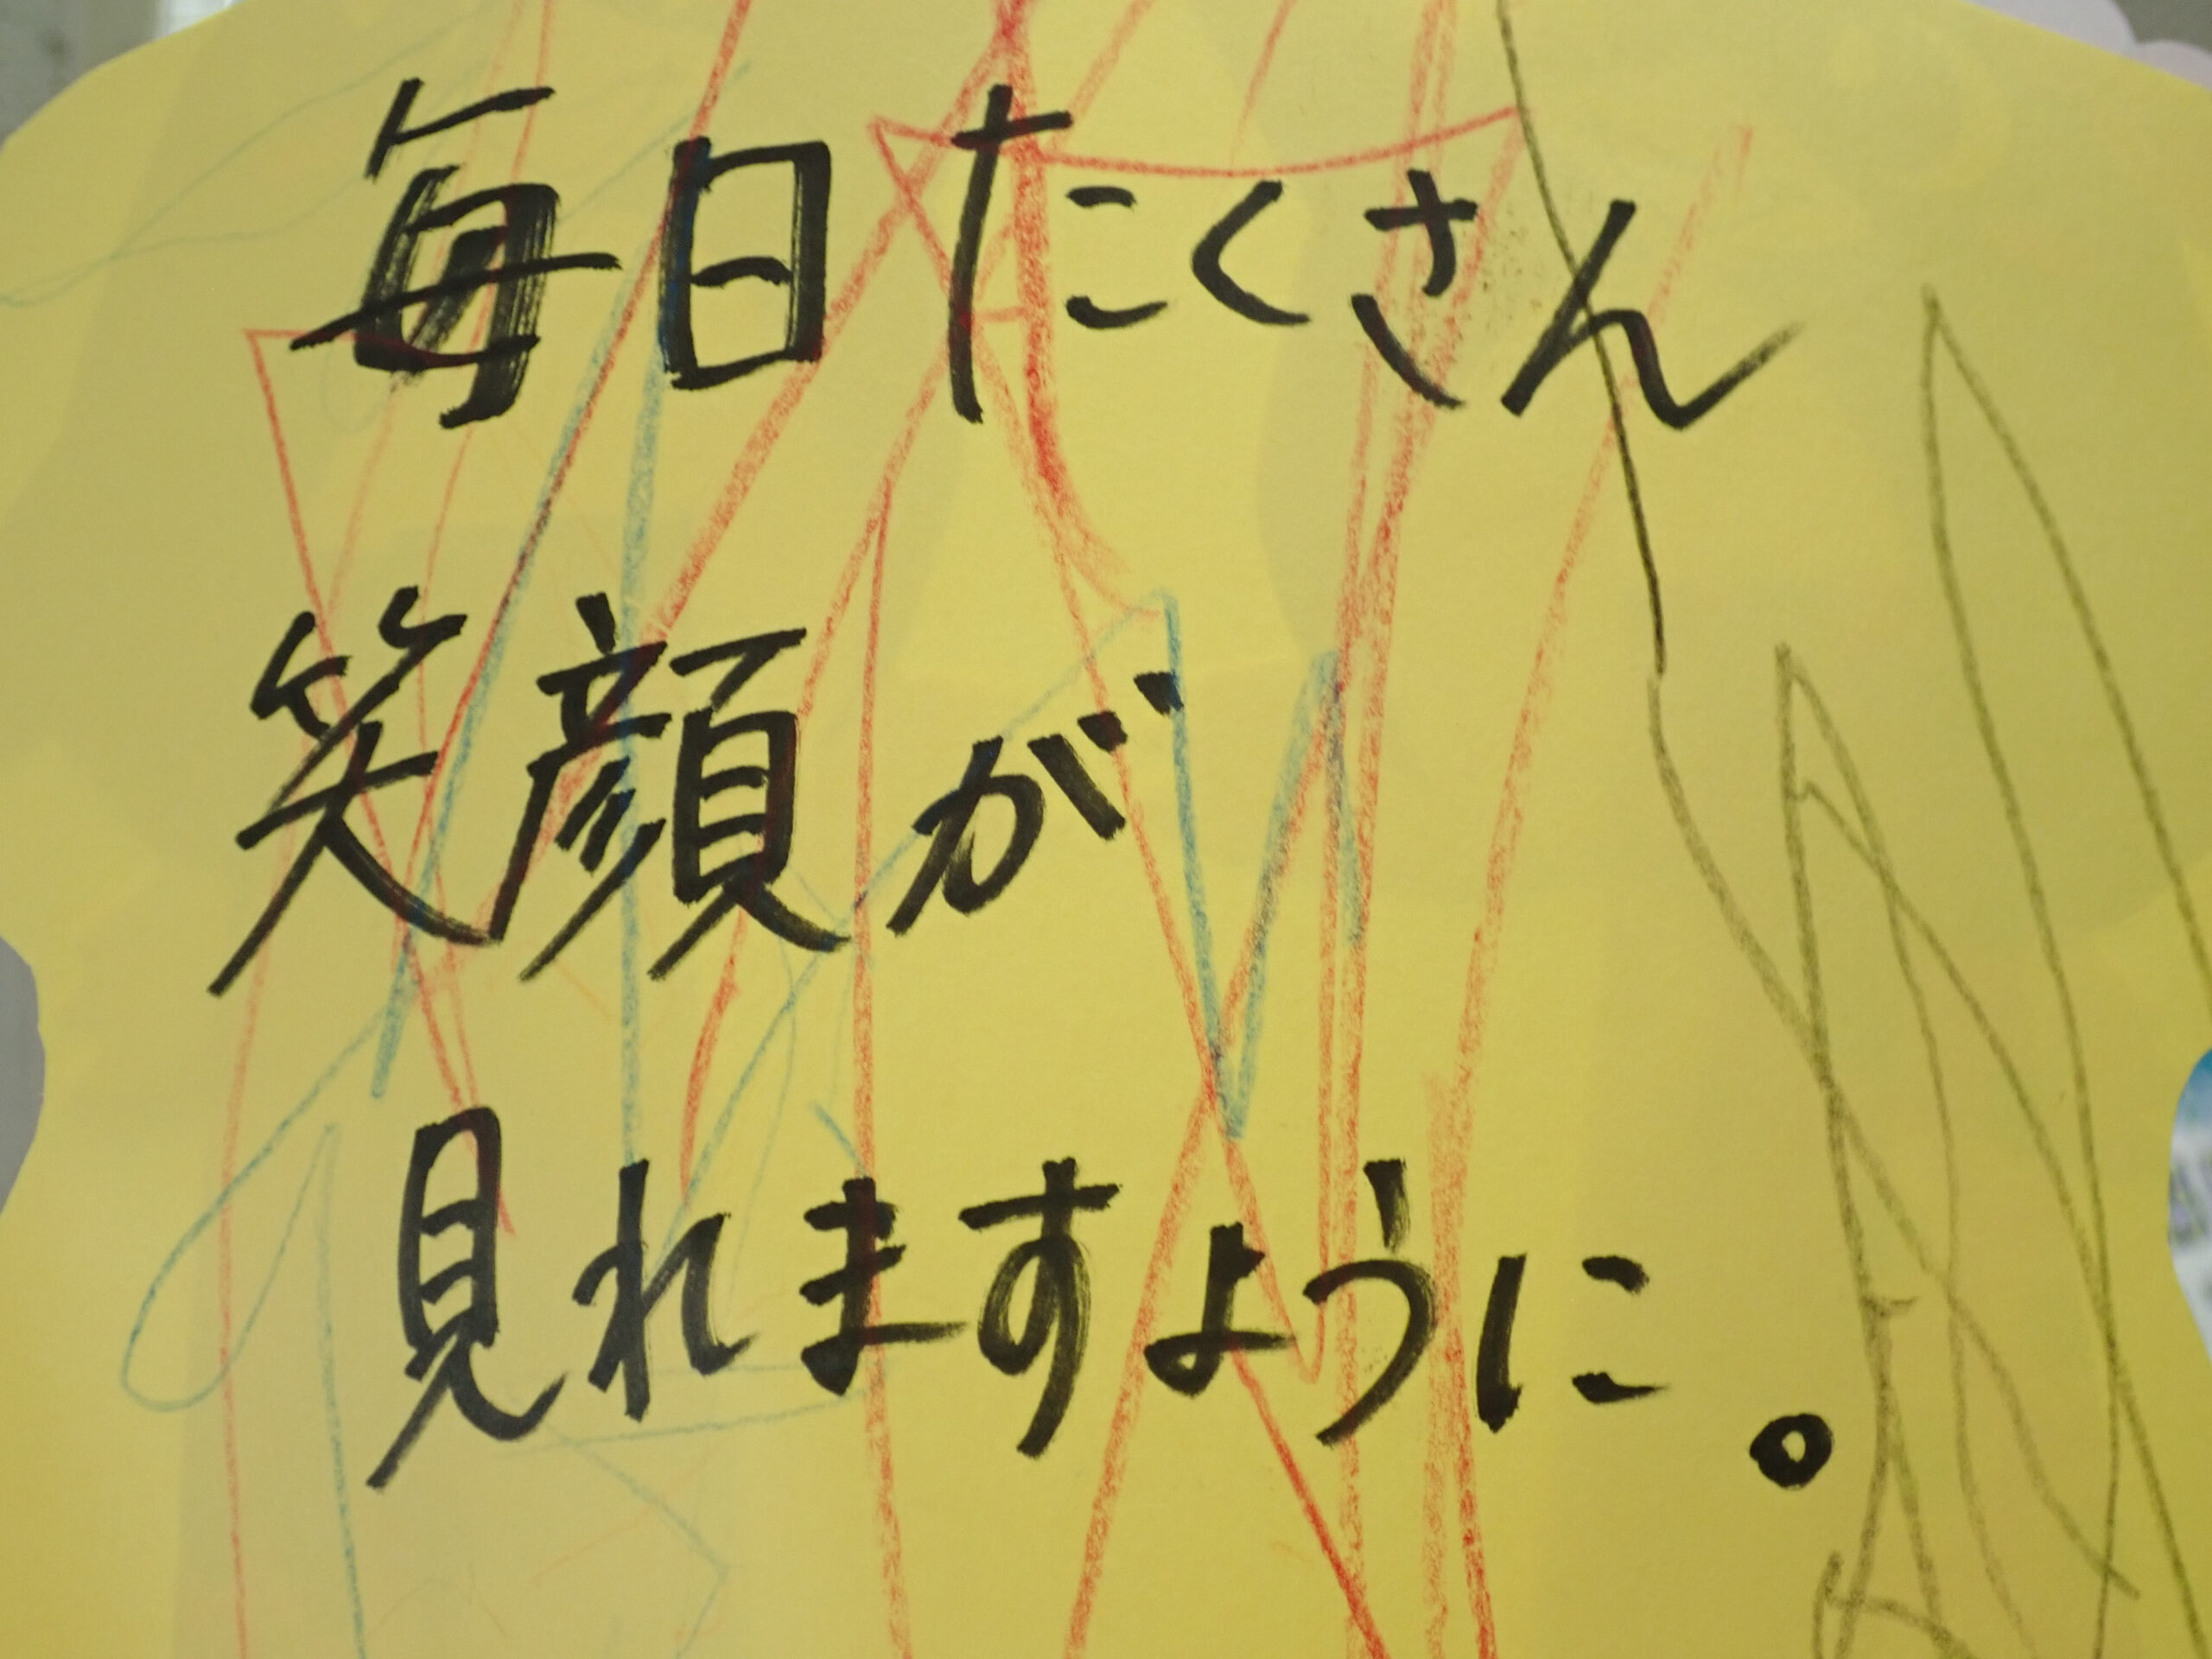 毎日たくさん
笑顔が
見れますように。